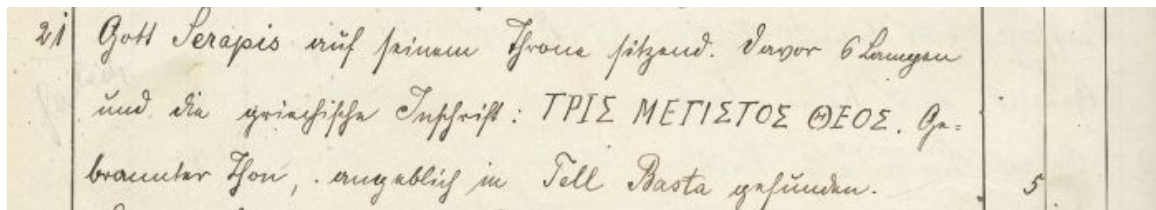 21 Gott Serapis auf seinem Throne sitzend. Davor 6 Lampen
und die griechische Inschrift: ΤΡΙΣ ΜΕΓΙΣΤΟΣ ΘΕΟΣ. Ge-
brannter Thon, angeblich in Tell Basta gefunden. 5